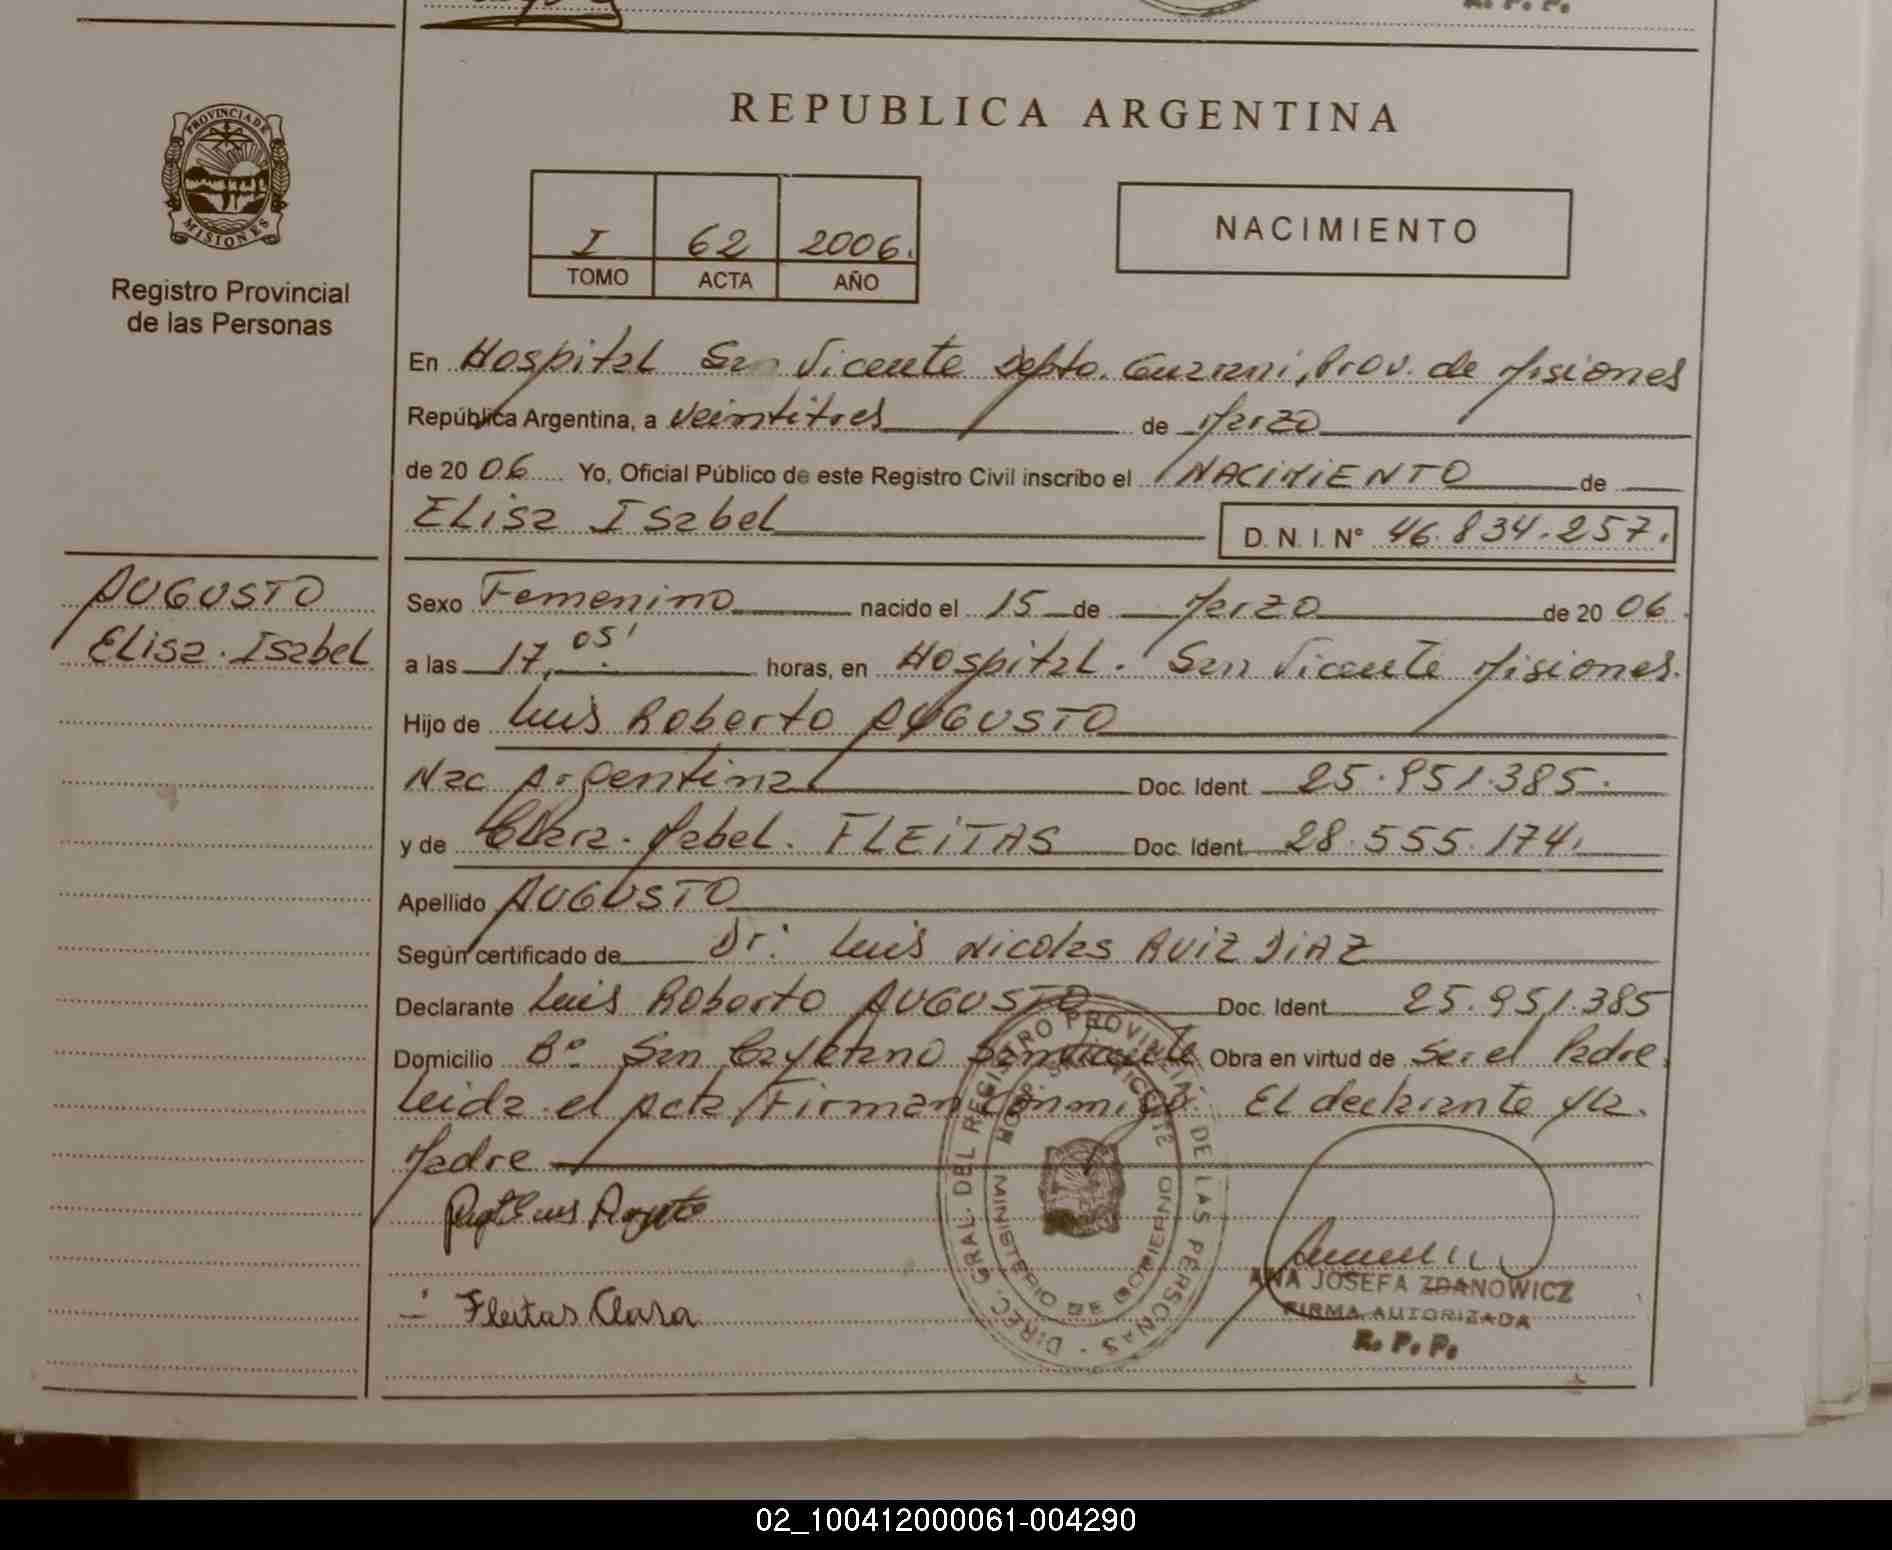 R. P. P.
REPUBLICA ARGENTINA
PROVINCIA DE
MISIONES
Registro Provincial
de las Personas
I 62 2006.
TOMO ACTA AÑO
NACIMIENTO
En Hospital San Vicente Depto. Guarani, Prov. de Misiones
República Argentina, a veintitres de Marzo
de 20 06 Yo, Oficial Público de este Registro Civil inscribo el NACIMIENTO de
Elisa Isabel
D. N. I. Nº 46.834.257.
AUGUSTO
Elisa. Isabel
Sexo Femenino nacido el 15 de Marzo de 20 06
a las 17,05' horas, en Hospital. San Vicente Misiones.
Hijo de Luis Roberto AUGUSTO
Nac Argentina Doc. Ident. 25.951.385.
y de Clara. Mabel. FLEITAS Doc. Ident. 28.555.174.
Apellido AUGUSTO
Según certificado de Dr: Luis Nicolas RUIZ DIAZ
Declarante Luis Roberto AUGUSTO Doc. Ident. 25.951.385
Domicilio Bº San Cayetano San Vicente Obra en virtud de Ser el Padre.
Leida el Acta, Firman Conmigo. El declarante y la.
Madre
Fleitas Clara
DIREC. GRAL. DEL REGISTRO PROVINCIAL DE LAS PERSONAS
HOSP. SAN VICENTE
MINISTERIO DE GOBIERNO
ANA JOSEFA ZDANOWICZ
FIRMA AUTORIZADA
R. P. P.
02_100412000061-004290